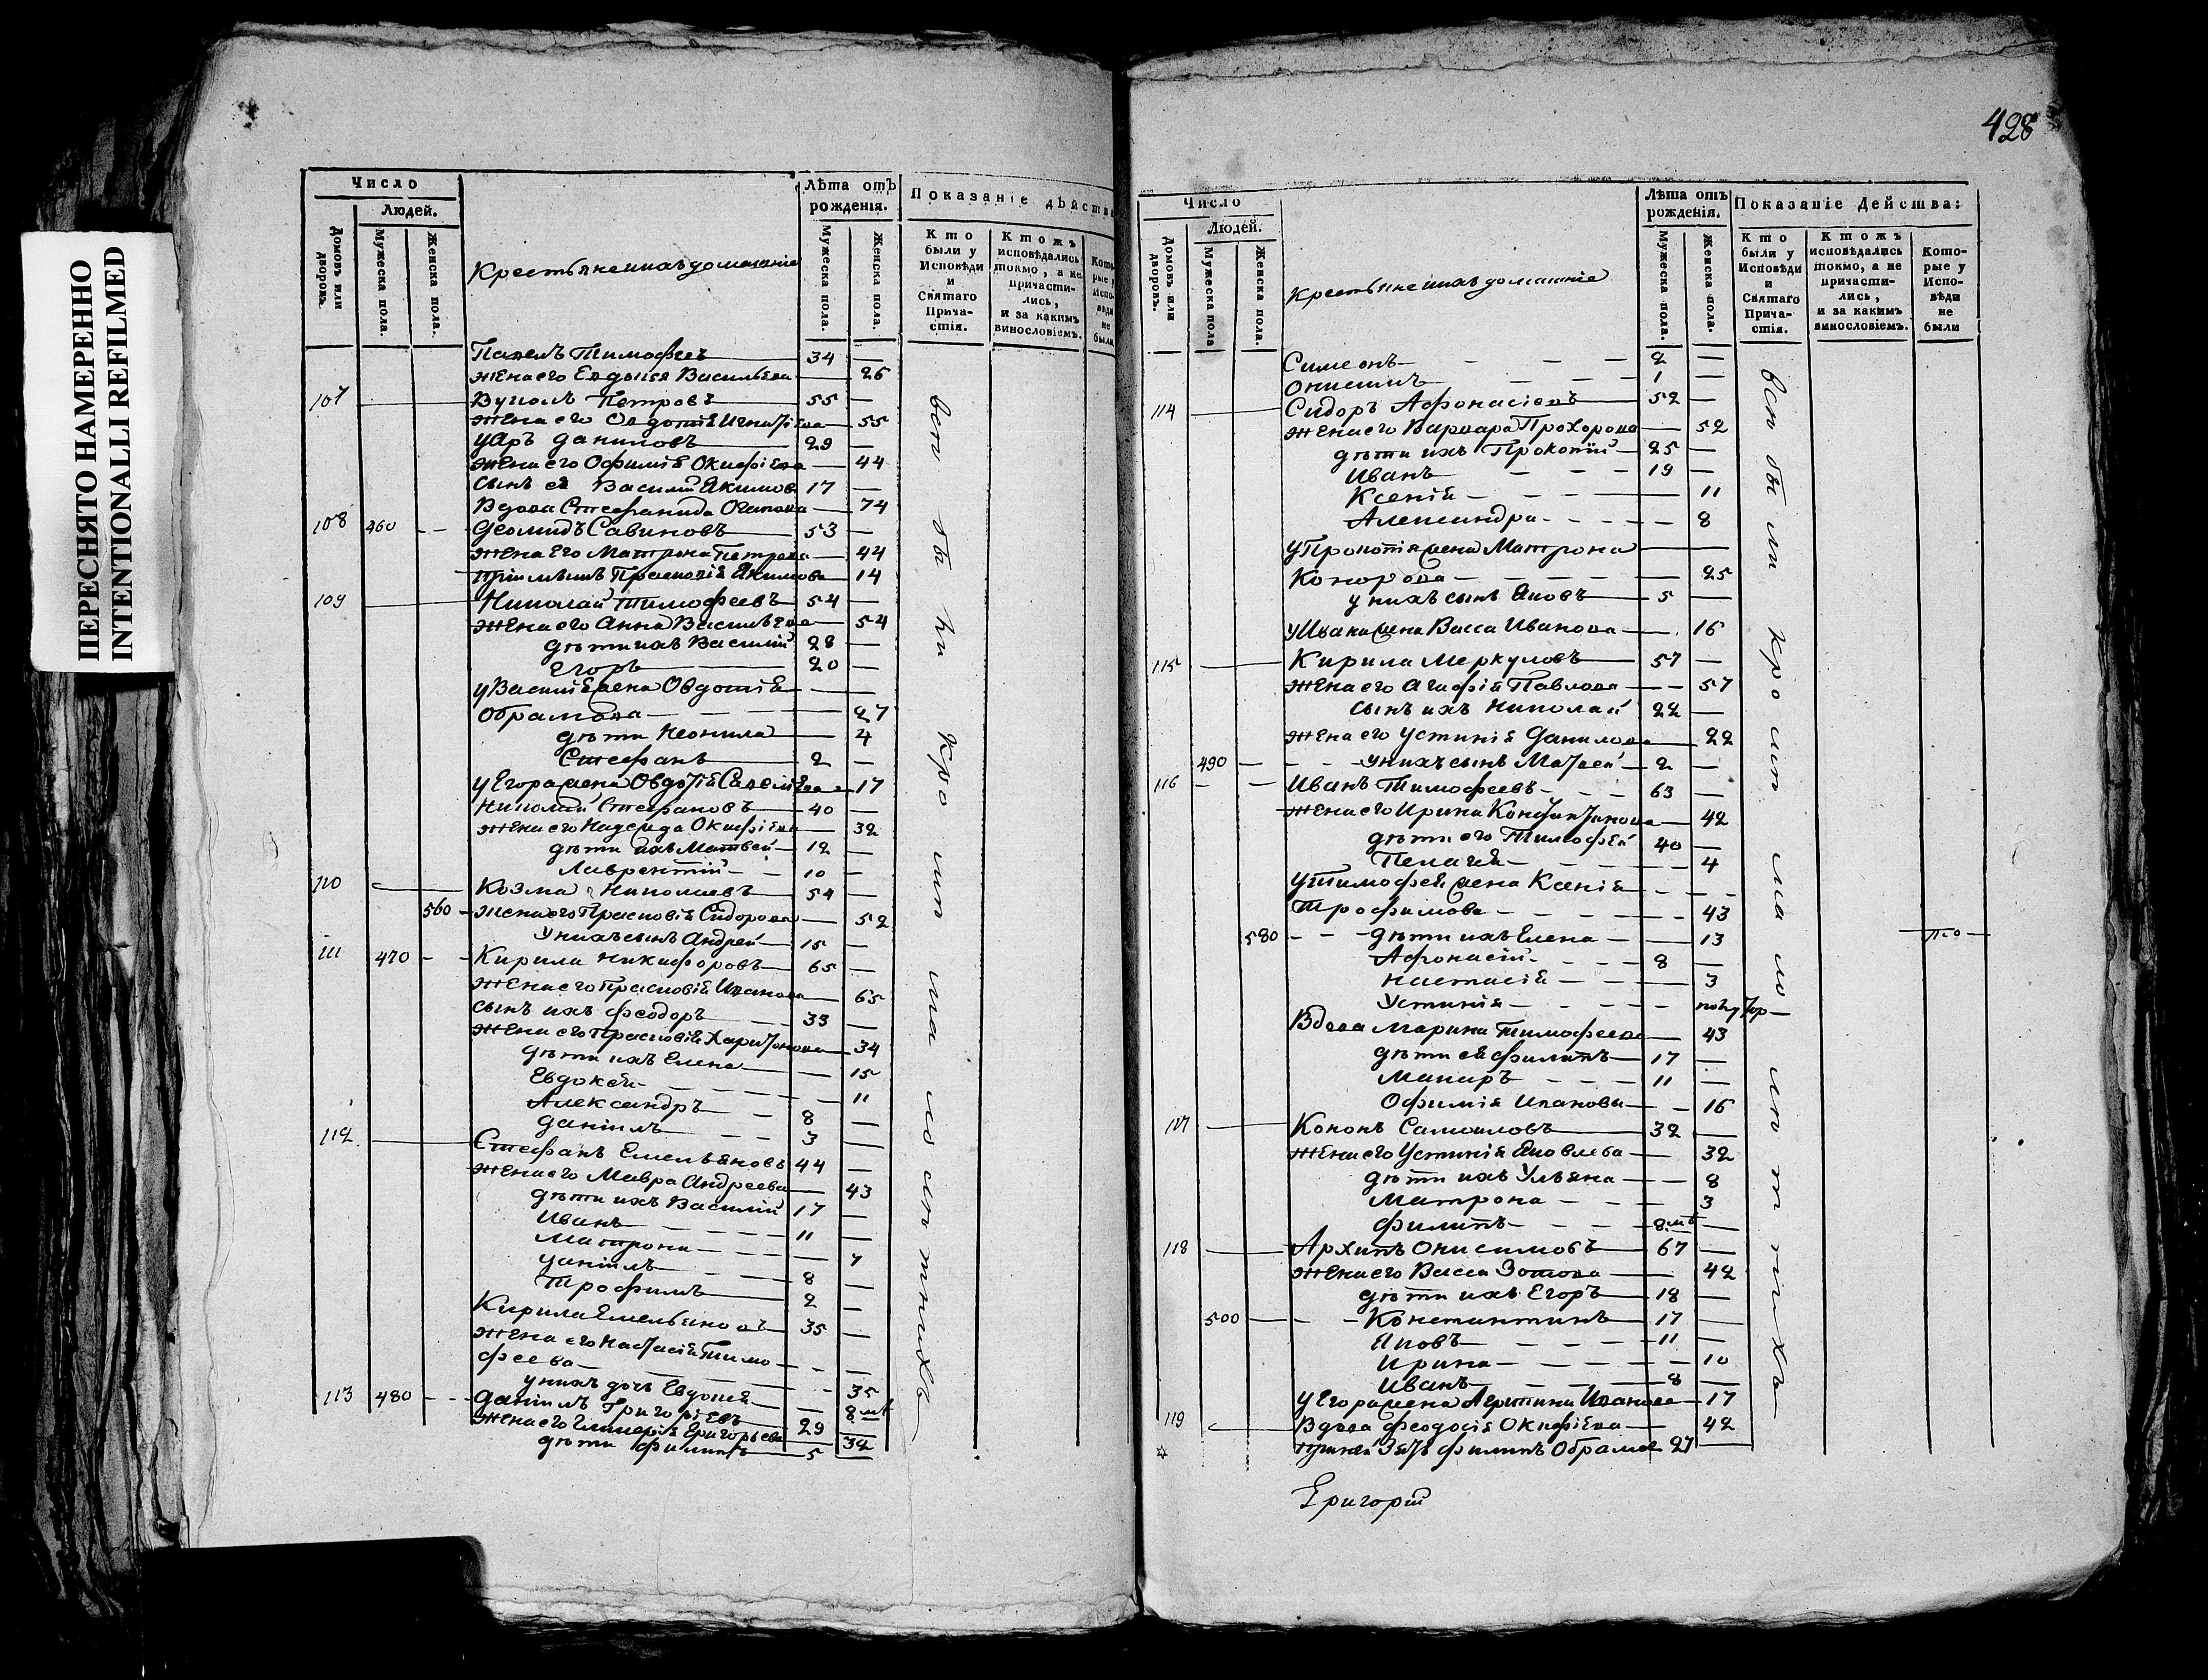 ПЕРЕСНЯТО НАМЕРЕННО
INTENTIONALLI REFILMED
Число
Людей.
Домовъ или дворовъ.
Мужеска пола.
Женска пола.
Крестьяне и ихъ домашніе
Лѣта отъ рожденія.
Мужеска пола.
Женска пола.
Показаніе дѣйства
Кто были у Исповѣди и Святаго Причастія.
Ктожъ исповѣдались токмо, а не причастились, и за какимъ винословіемъ.
Которые у Исповѣди не были
Павелъ Тимофеевъ 34 —
жена его Евдокея Васильева — 26
107 — Петровъ 55 —
жена его Овдотiя — 55
Даниловъ 29 —
жена его Офимiя Окифiева — 44
сынъ ея Василiй Якимов 17 —
Вдова Стефанида — 74
108 460 - - Деомидъ Савиновъ 53 —
жена его Матрона Петрова — 44
Прасковiя Якимова — 14
109 — Николай Тимофеевъ 54 —
жена его Анна Васильева — 54
дѣти ихъ Василiй 28 —
Егоръ 20 —
у Василiя жена Овдотiя — —
Обрамова — 27
дѣти Неонила — 4
Стефанъ 2 —
у Егора жена Овдотiя — 17
Николай Стефановъ 40 —
жена его Надежда Окифiева — 32
дѣти ихъ Матвей 12 —
Лаврентiй 10 —
110 — Козма Николаевъ 54 —
560 - жена его Прасковiя Сидорова — 52
у нихъ сынъ Андрей 15 —
111 470 - - Кирила Никифоровъ 65 —
жена его Прасковiя Иванова — 65
сынъ ихъ Феодоръ 33 —
жена его Прасковiя Харитонова — 34
дѣти ихъ Елена — 15
Евдокея — 11
Александръ 8 —
Данiилъ 3 —
112 — Стефанъ Емельяновъ 44 —
жена его Мавра Андреева — 43
дѣти ихъ Василiй 17 —
Иванъ 11 —
Матрона — 7
Данiилъ 8 —
Трофимъ 2 —
Кирила Емельяновъ 35 —
жена его Настасiя Тимо
феева — 35
у нихъ дочь Евдокея — 8 мѣ
113 480 - - Данiилъ Григорiевъ 29 —
жена его Гликерiя Григорьева — 32
дѣти Филипъ 5 —
всп бѣ ли кро ип ма ло лп т нихъ
428
Число
Людей.
Домовъ или дворовъ.
Мужеска пола
Женска пола.
Крестьяне и ихъ домашніе
Лѣта отъ рожденія.
Мужеска пола.
Женска пола.
Показаніе Дейсmва:
Кто были у Исповѣди и Святаго Причастія.
Ктожъ исповѣдались токмо, а не причастились, и за какимъ винословіемъ.
Которые у Исповѣди не были
Симеонъ 2 —
Онисимъ 1 —
114 — Сидоръ Афонасiевъ 52 —
жена его Варвара Прохорова — 52
дѣти ихъ Прокопiй 25 —
Иванъ 19 —
Ксенiя — 11
Александра — 8
у Прокопiя жена Матрона — —
— 25
у нихъ сынъ Яковъ 5 —
у Ивана жена Васса Иванова — 16
115 — Кирила Меркуловъ 57 —
жена его Агафiя Павлова — 57
сынъ ихъ Николай 22 —
жена его Устинiя Данилова — 22
490 - - у нихъ сынъ Матвей 2 —
116 - - Иванъ Тимофеевъ 63 —
жена его Ирина Константинова — 42
дѣти его Тимофей 40 —
Пелагея — 4
у Тимофея жена Ксенiя — —
Трофимова — 43
580 - - дѣти ихъ Елена — 13
Афонасiй 8 —
Настасiя — 3
Устинiя — полутор
Вдова Марина Тимофеева — 43
дѣти ея Филипъ 17 —
Макаръ 11 —
Офимiя Иванова — 16
117 — Кононъ Самоиловъ 32 —
жена его Устинiя Яковлева — 32
дѣти ихъ Ульяна — 8
Матрона — 3
Филипъ 8 мѣ —
118 — Архипъ Онисимовъ 67 —
жена его Васса Зотова — 42
дѣти ихъ Егоръ 18 —
500 - - Константинъ 17 —
Яковъ 11 —
Ирина — 10
Иванъ 8 —
у Егора жена Иванова — 17
119 — Вдова Феодосiя Окифiева — 42
Зять Филипъ Обрамов 27 —
всп бѣ ли кро ип ма ло лп т нихъ
Григорiй